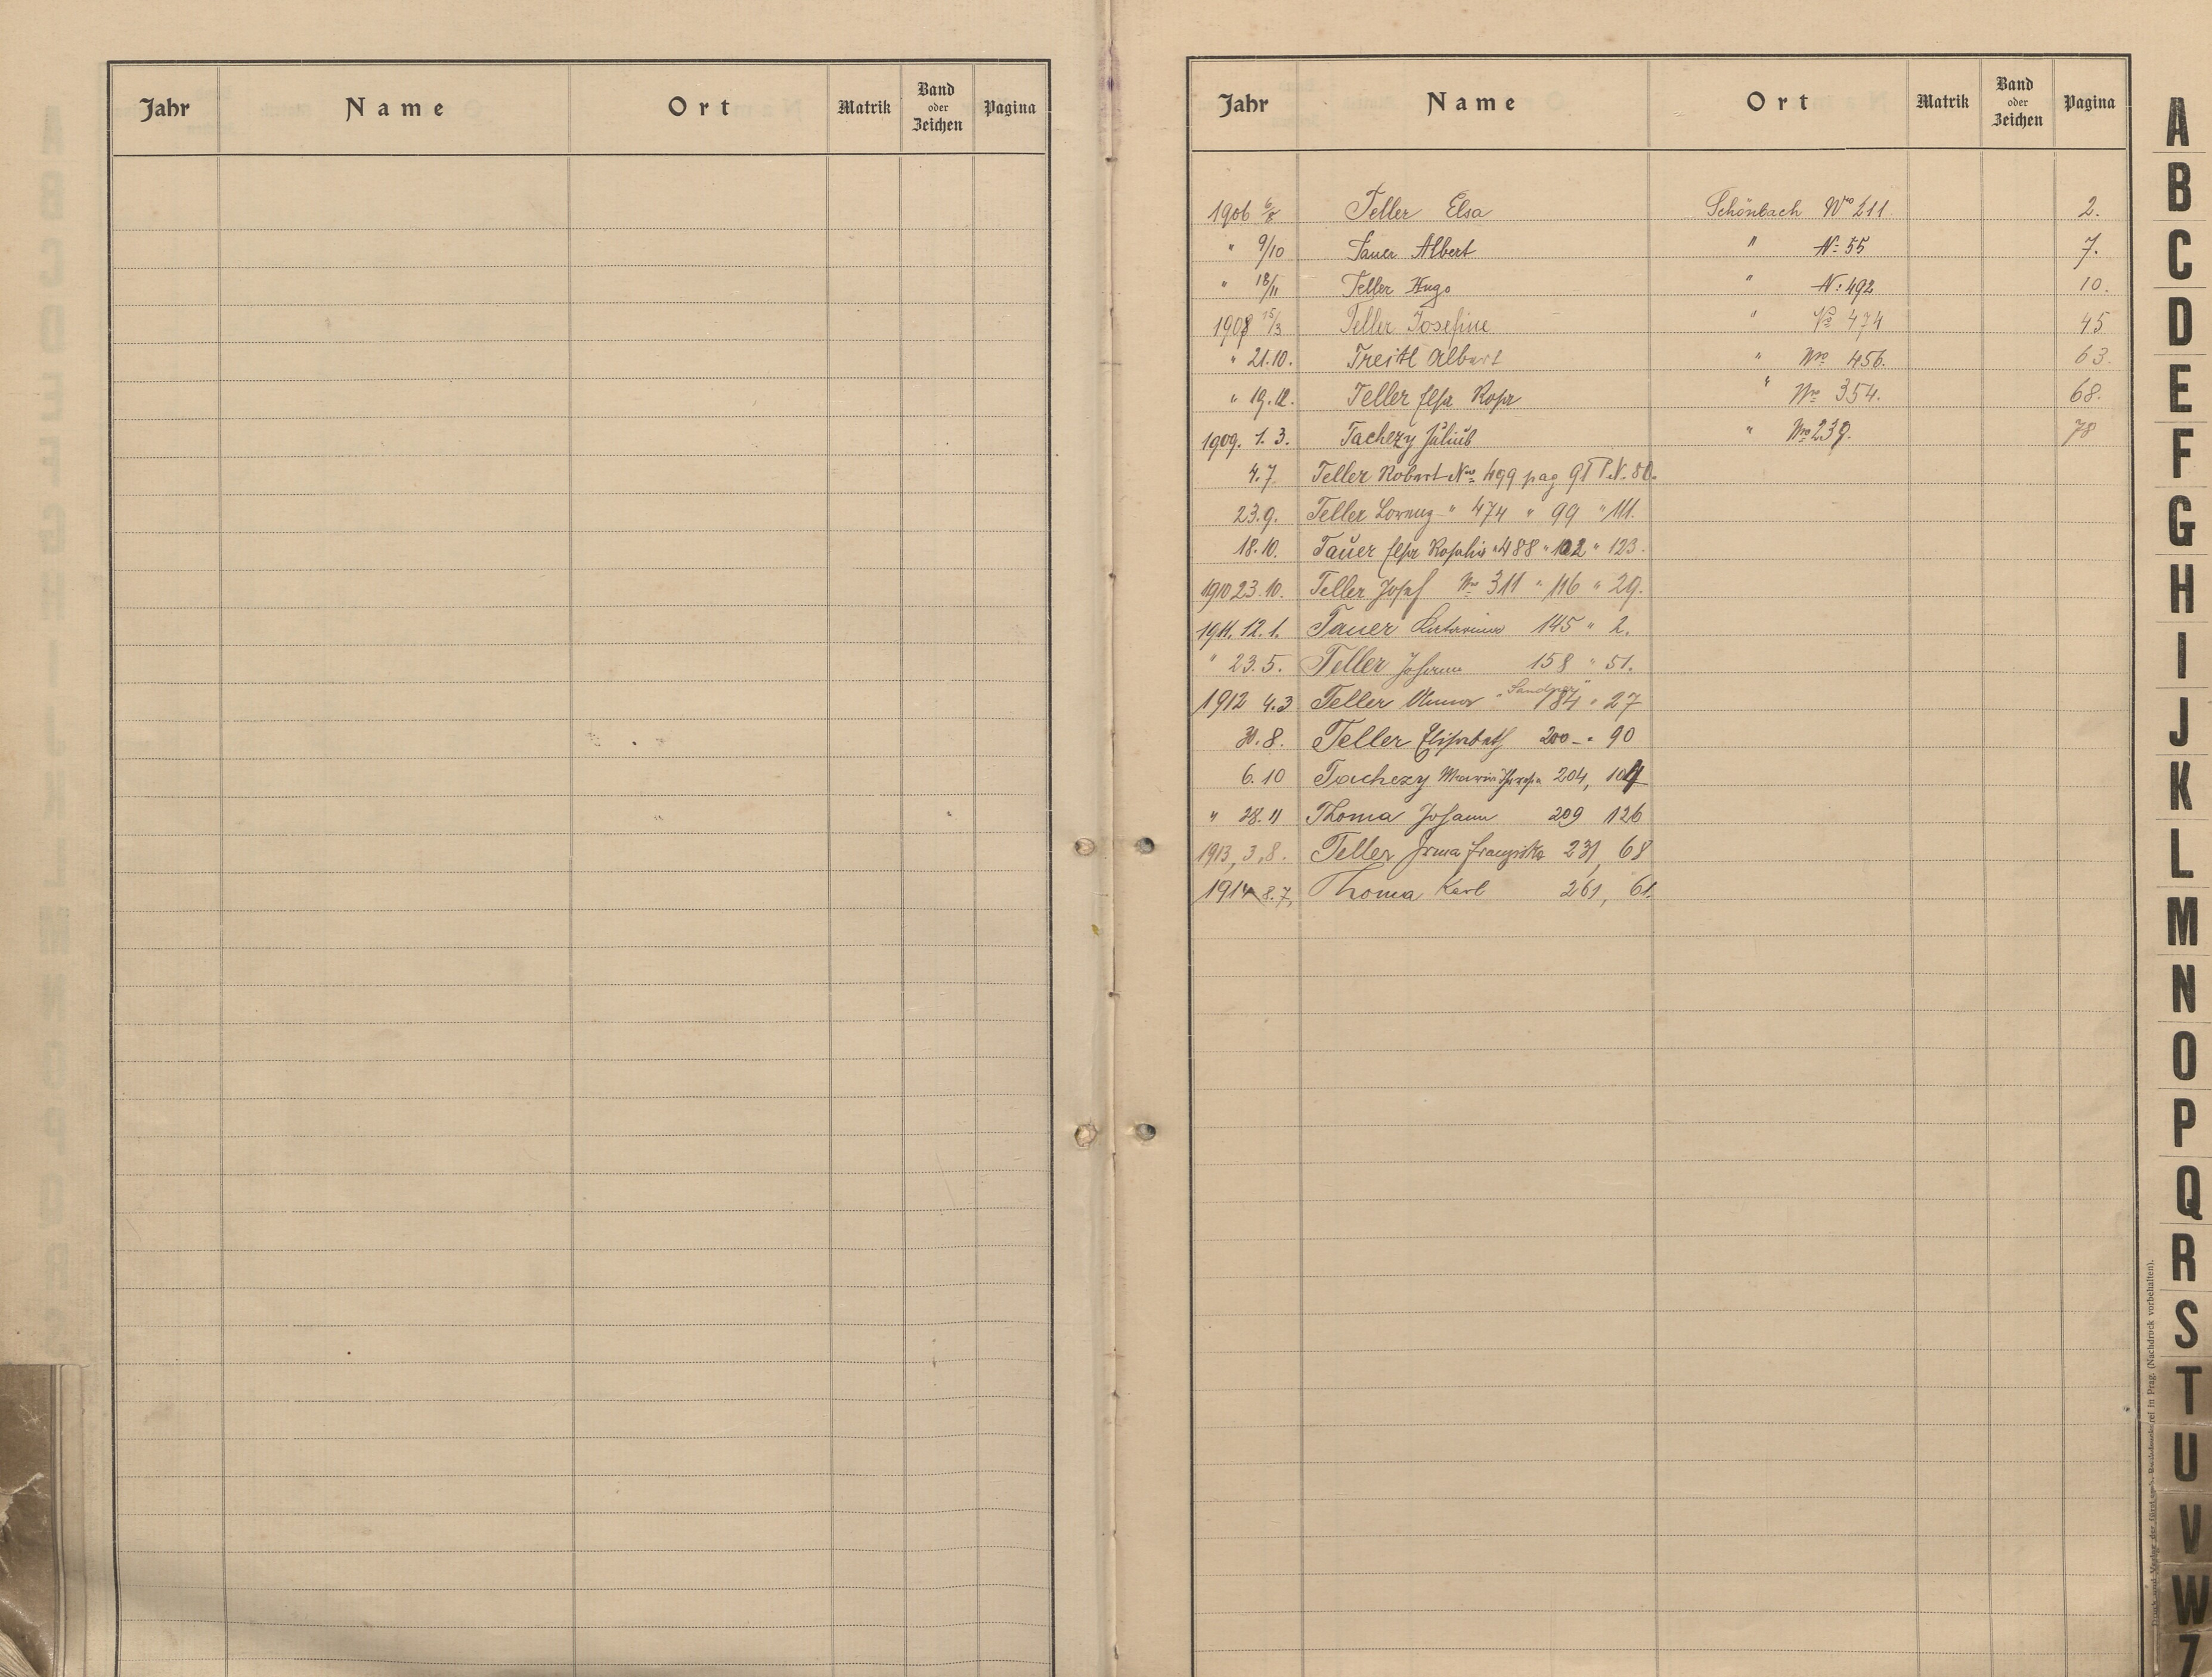 Jahr Name Ort Matrik Band oder Zeichen Pagina
Jahr Name Ort Matrik Band oder Zeichen Pagina
1906 6/8 Teller Elsa Schönbach No 211 2.
" 9/10 Tauer Albert " No 55 7.
" 18/11 Teller Hugo " No 492 10.
1908 15/3 Teller Josefine " No 474 45
" 21.10. Treitl Albert " No 456. 63.
" 19.12. Teller Elsa Rosa " No 354. 68.
1909. 1. 3. Tachezy Julius " No 239. 78
4.7. Teller Robert No 499 pag 91 P.N. 80.
23.9. Teller Lorenz " 474 " 99 " 111.
18.10. Tauer Elsa Rosalia " 488 " 102 " 123.
1910 23.10. Teller Josef No 311 " 116 " 29.
1911. 12.1. Tauer Katharina 145 " 2.
" 23.5. Teller Johann 158 " 51.
1912 4.3 Teller Anna 184 " 27
30.8. Teller Elisabeth 200 - " 90
6.10 Tachezy Maria Theresia 204, 104
" 28.11 Thoma Johann 209 126
1913, 3,8. Teller Irma Franziska 231, 68
1914 8.7, Thoma Karl 261, 61.
A
B
C
D
E
F
G
H
I
J
K
L
M
N
O
P
Q
R
S
T
U
V
W
Z
in Prag. (Nachdruck vorbehalten).